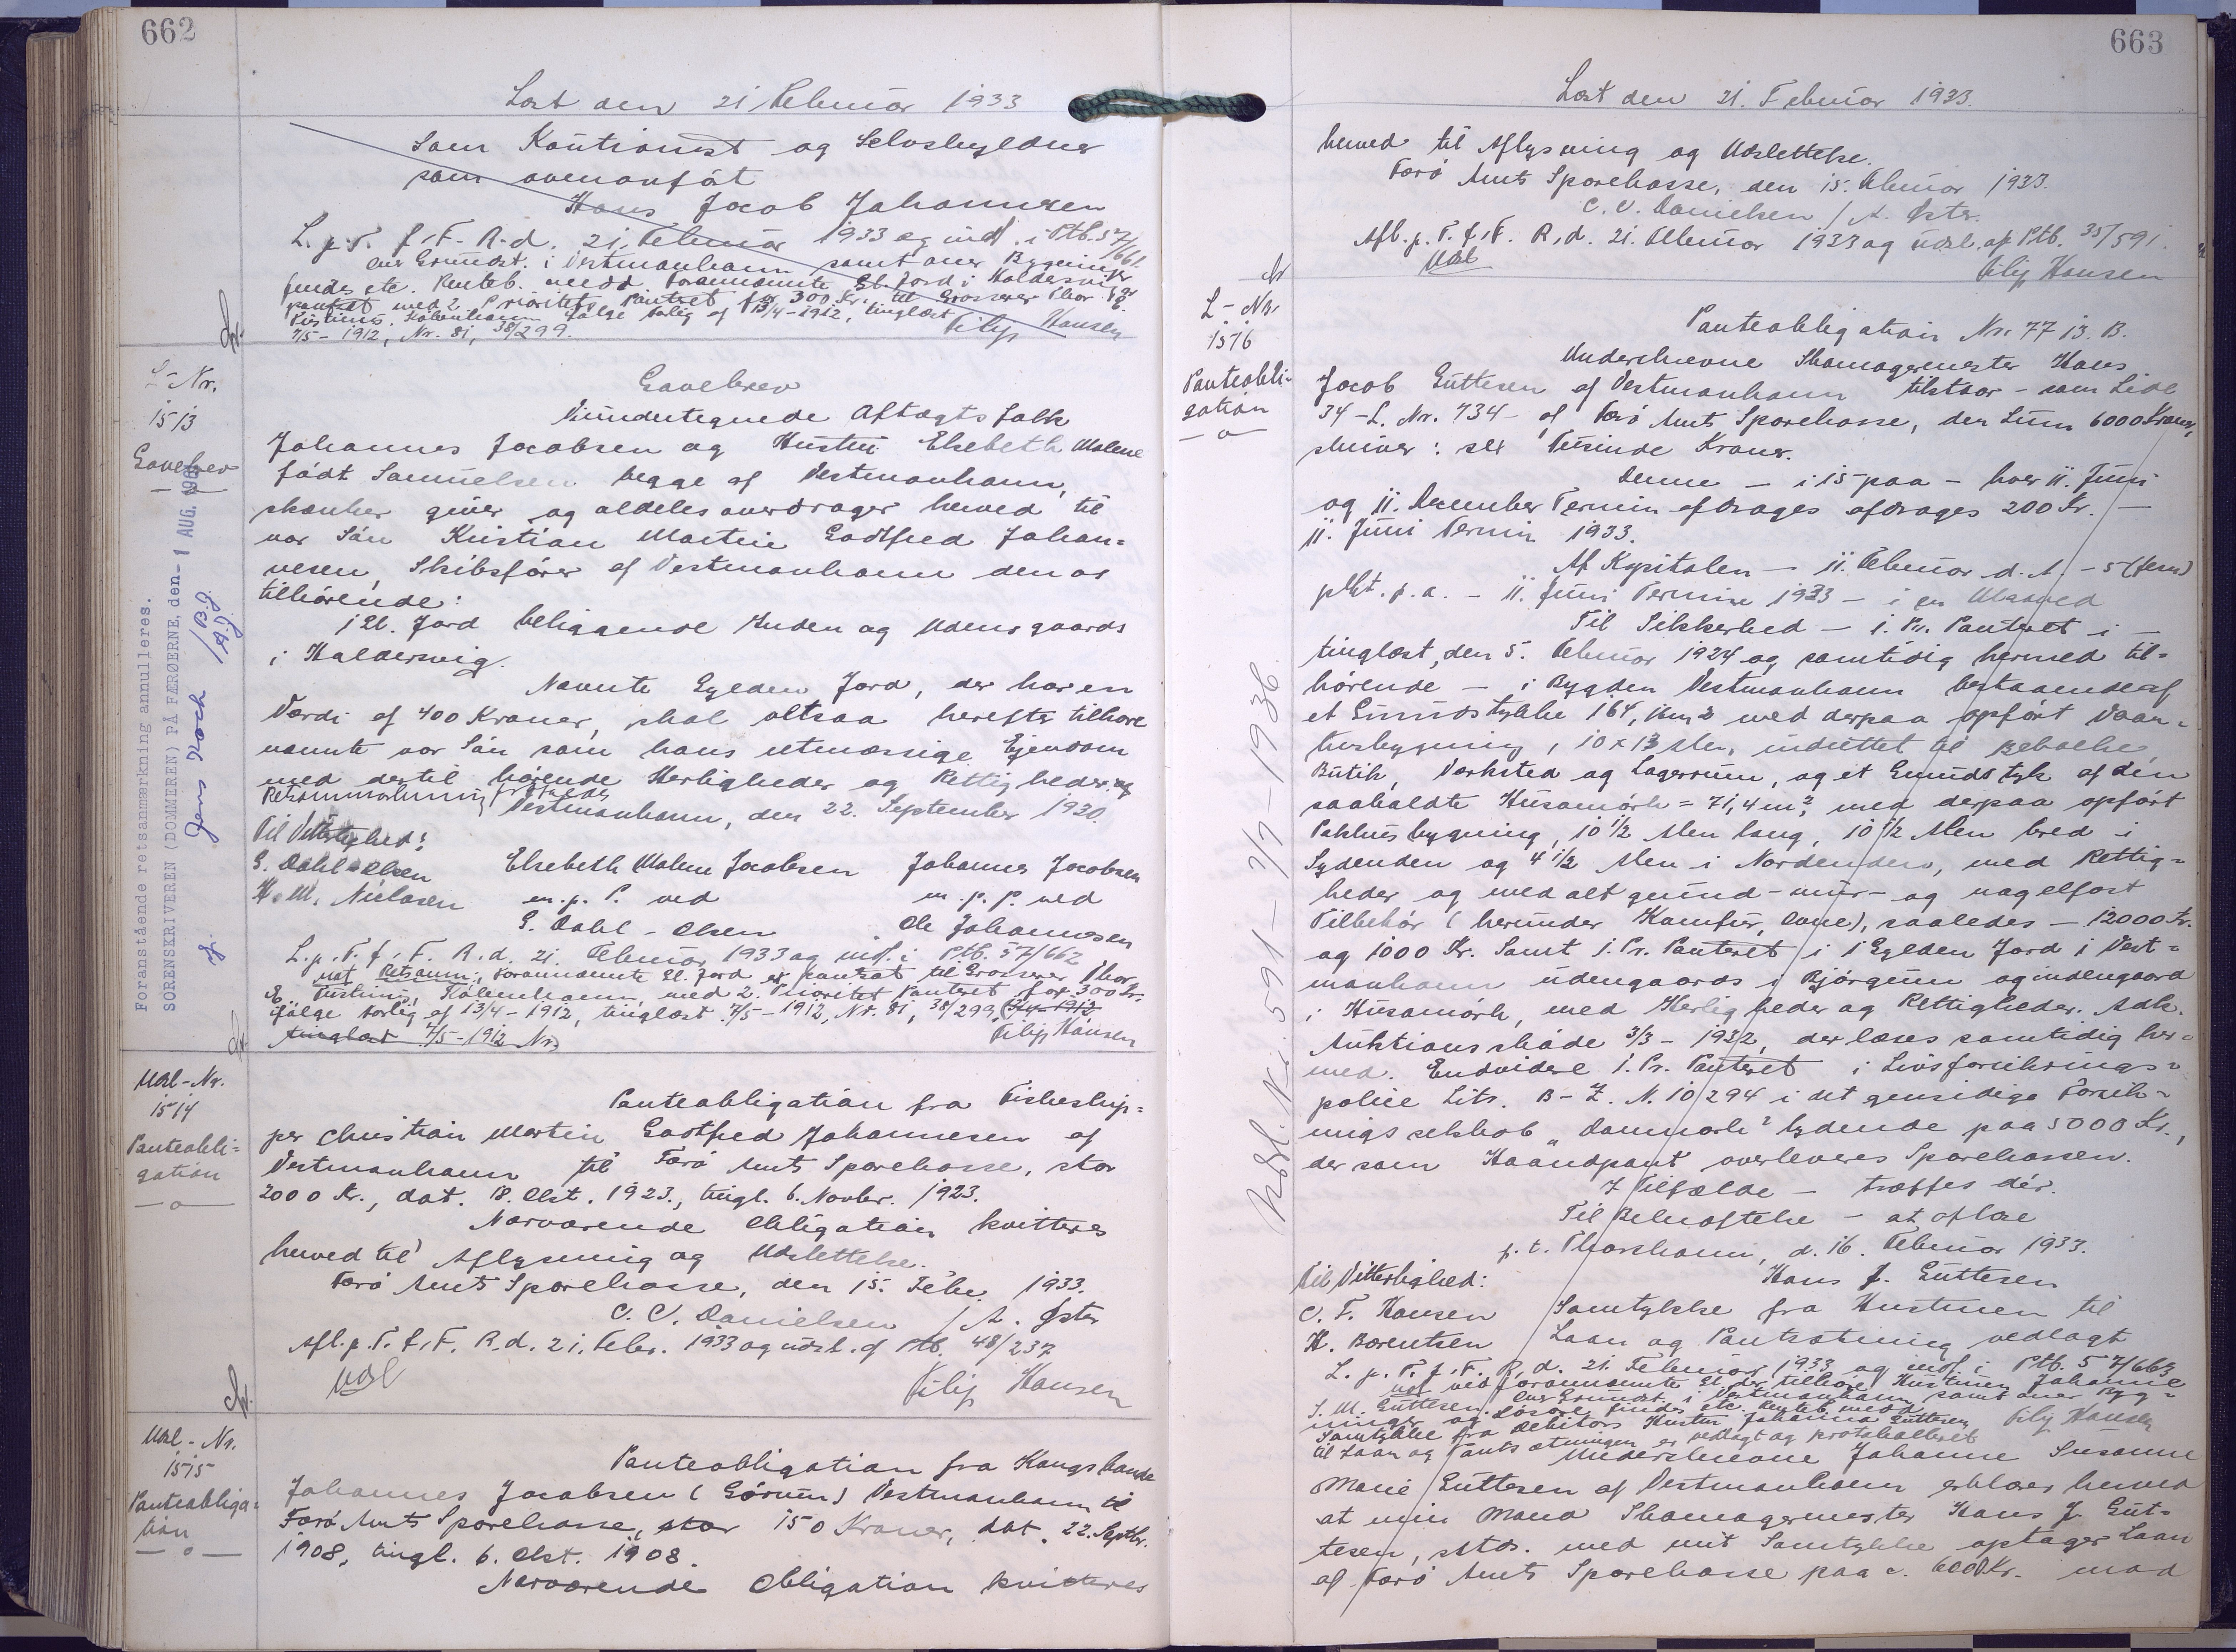 662
Læst den 21 Februar 1933
som Kautionist og Selvskyldner
som ovenanført
Hans Jacob Johannesen
L. p. T. f. F. R. d. 21. Februar 1933 og indf. i Ptb. 57/661.
over Grundst. i Vestmanhavn samt over Bygninger
findes etc. Renteb. medd. Forannævnte Gl. Jord i Haldersvig er
pantsat med 2. Prioritets Panteret for 300 Kr. til Grosserer Thor E.
Tustinius, Kjøbenhavn ifølge Forlig af 13/4-1912, tinglæst
7/5-1912, Nr. 81, 38/299. Filip Hansen
L-Nr.
1513
Gavebrev
Gavebrev
Vi undertegnede Aftægtsfolk
Johannes Jacobsen og Hustru Elsebeth Malene
født Samuelsen begge af Vestmanhavn,
skænker giver og aldeles overdrager herved til
vor Søn Kristian Martin Godtfred Johan=
nesen, Skibsfører af Vestmanhavn den os
tilhørende:
1 Gl. Jord beliggende Inden og Udengaards
i Haldersvig.
Nævnte Gylden Jord, der har en
Værdi af 400 Kroner, skal altsaa herefter tilhøre
nævnte vor Søn som hans retmæssige Ejendom
med dertil hørende Herligheder og Rettigheder og
Vestmanhavn, den 22. September 1930.
Til Vitterlighed:
G. Dahl-Olsen Elsebeth Malene Jacobsen Johannes Jacobsen
H. M. Nielasen m. p. P. ved m. p. P. ved
G. Dahl-Olsen Ole Johannesen
L. p. T. f. F. R. d. 21. Februar 1933 og indf. i Ptb. 57/662
not Retsanm: Forannævnte Gl. Jord er pantsat til Grosserer Thor
E. Tustinius, Kjøbenhavn, med 2. Prioritet Panteret for 300 Kr.
ifølge Forlig af 13/4-1912, tinglæst 7/5-1912, Nr. 81, 38/299,
tinglæst 7/5-1912 Nr. Filip Hansen
Foranstående retsanmærkning annulleres.
SORENSKRIVEREN (DOMMEREN) PÅ FÆRØERNE, den - 1 AUG. 196
Jens Koch
Udsl-Nr.
1514
Panteobli=
gation
Panteobligation fra Fiskeskip=
per Christian Martin Godtfred Johannesen af
Vestmanhavn til Færø Amts Sparekasse, stor
2000 Kr., dat. 18. Okt. 1923, tingl. 6. Novbr. 1923.
Nærværende Obligation kvitteres
herved til Aflysning og Udslettelse.
Færø Amts Sparekasse, den 15. Febr. 1933.
C. C. Danielsen / A. Øster
Afl. p. T. f. F. R. d. 21. Febr. 1933 og udsl. af Ptb. 48/237
Udsl
Filip Hansen
Udsl-Nr.
1515
Panteobliga=
tion
Panteobligation fra Kongsbonde
Johannes Jacobsen (Górum) Vestmanhavn til
Færø Amts Sparekasse, stor 150 Kroner, dat. 22. Septbr.
1908, tingl. 6. Okt. 1908.
Nærværende Obligation kvitteres
663
Læst den 21. Februar 1933.
herved til Aflysning og Udslettelse.
Færø Amts Sparekasse, den 15. Februar 1933.
C. C. Danielsen / A. Øster.
Afl. p. T. f. F. R. d. 21. Februar 1933 og udsl. af Ptb. 35/591.
Udsl
Filip Hansen
L-Nr.
1516
Panteobli=
gation
Panteobligation Nr. 77 13. B.
Underskrevne Skomagermester Hans
Jacob Guttesen af Vestmanhavn tilstaar - som Lide
34-L. Nr. 734- af Færø Amts Sparekasse, den Sum 6000 Kroner,
skriver: sex Tusinde Kroner.
Denne - i 15 paa - hver 11. Juni
og 11. December Termin afdrages afdrages 200 Kr. -
11. Juni Termin 1933.
Af Kapitalen - 11. Februar d. A. - 5 (fem)
pCt. p. a. - 11. Juni Termin 1933 - i en Maaned
Til Sikkerhed - 1. Pr. Panteret i -
tinglæst, den 5. Februar 1924 og samtidig hermed til=
hørende - i Bygden Vestmanhavn bestaaende af
et Grundstykke 164,16 m2 med derpaa opført Vaan=
husbygning, 10 x 13 Alen, indrettet til Beboelse,
Butik, Værksted og Lagerrum, og et Grundstyk af den
saakaldte Húsamørk = 71,4 m2, med derpaa opført
Pakhusbygning, 10 1/2 Alen lang, 10 1/2 Alen bred i
Sydenden og 4 1/2 Alen i Nordenden, med Rettig=
heder og med alt grund- mur- og nagelfast
Tilbehør (herunder Komfur, Ovne), saaledes - 12000 Kr.
og 1000 Kr. Samt 1. Pr. Panteret i 1 Gylden Jord i Vest=
manhavn udengaards i Bjørgum og indengaard
i Húsamørk, med Herligheder og Rettigheder. Adk.
Auktionsskøde 3/3-1932, der læses samtidig her=
med. Endvidere 1. Pr. Panteret i Livsforsikrings=
police Litr. B-Z. N. 10294 i det gensidige Forsik=
rings selskab "Danmark" lydende paa 5000 Kr.,
der som Haandpant overleveres Sparekassen.
I Tilfælde - træffes dér.
Til Bekræftelse - at aflæse
p. t. Thorshavn, d. 16. Februar 1933.
Til Vitterlighed: Hans J. Guttesen
C. F. Hansen Samtykke fra Hustruen til
H. Børentsen Laan og Pantsætning vedlagt
L. p. T. f. F. R. d. 21. Februar 1933 og indf. i Ptb. 57/663
not ved forannævnte Gl. der tilhører Hustruen Johanne
S. M. Guttesen. over Grundst. i Vestmanhavn samt over Byg=
ninger og Løsøre findes etc. Renteb. medd.
Samtykke fra Debitors Hustru Johanna Guttesen Filip Hansen
til Laan og Pantsætningen er vedlagt og protokolleret
Underskrevne Johanne Susanne
Marie Guttesen af Vestmanhavn erklærer herved
at min Mand Skomagermester Hans J. Gut=
tesen, sstds. med mit Samtykke optager Laan
af Færø Amts Sparekasse paa c. 6000 Kr. mod
Udsl. Nr. 591 - 7/7-1936